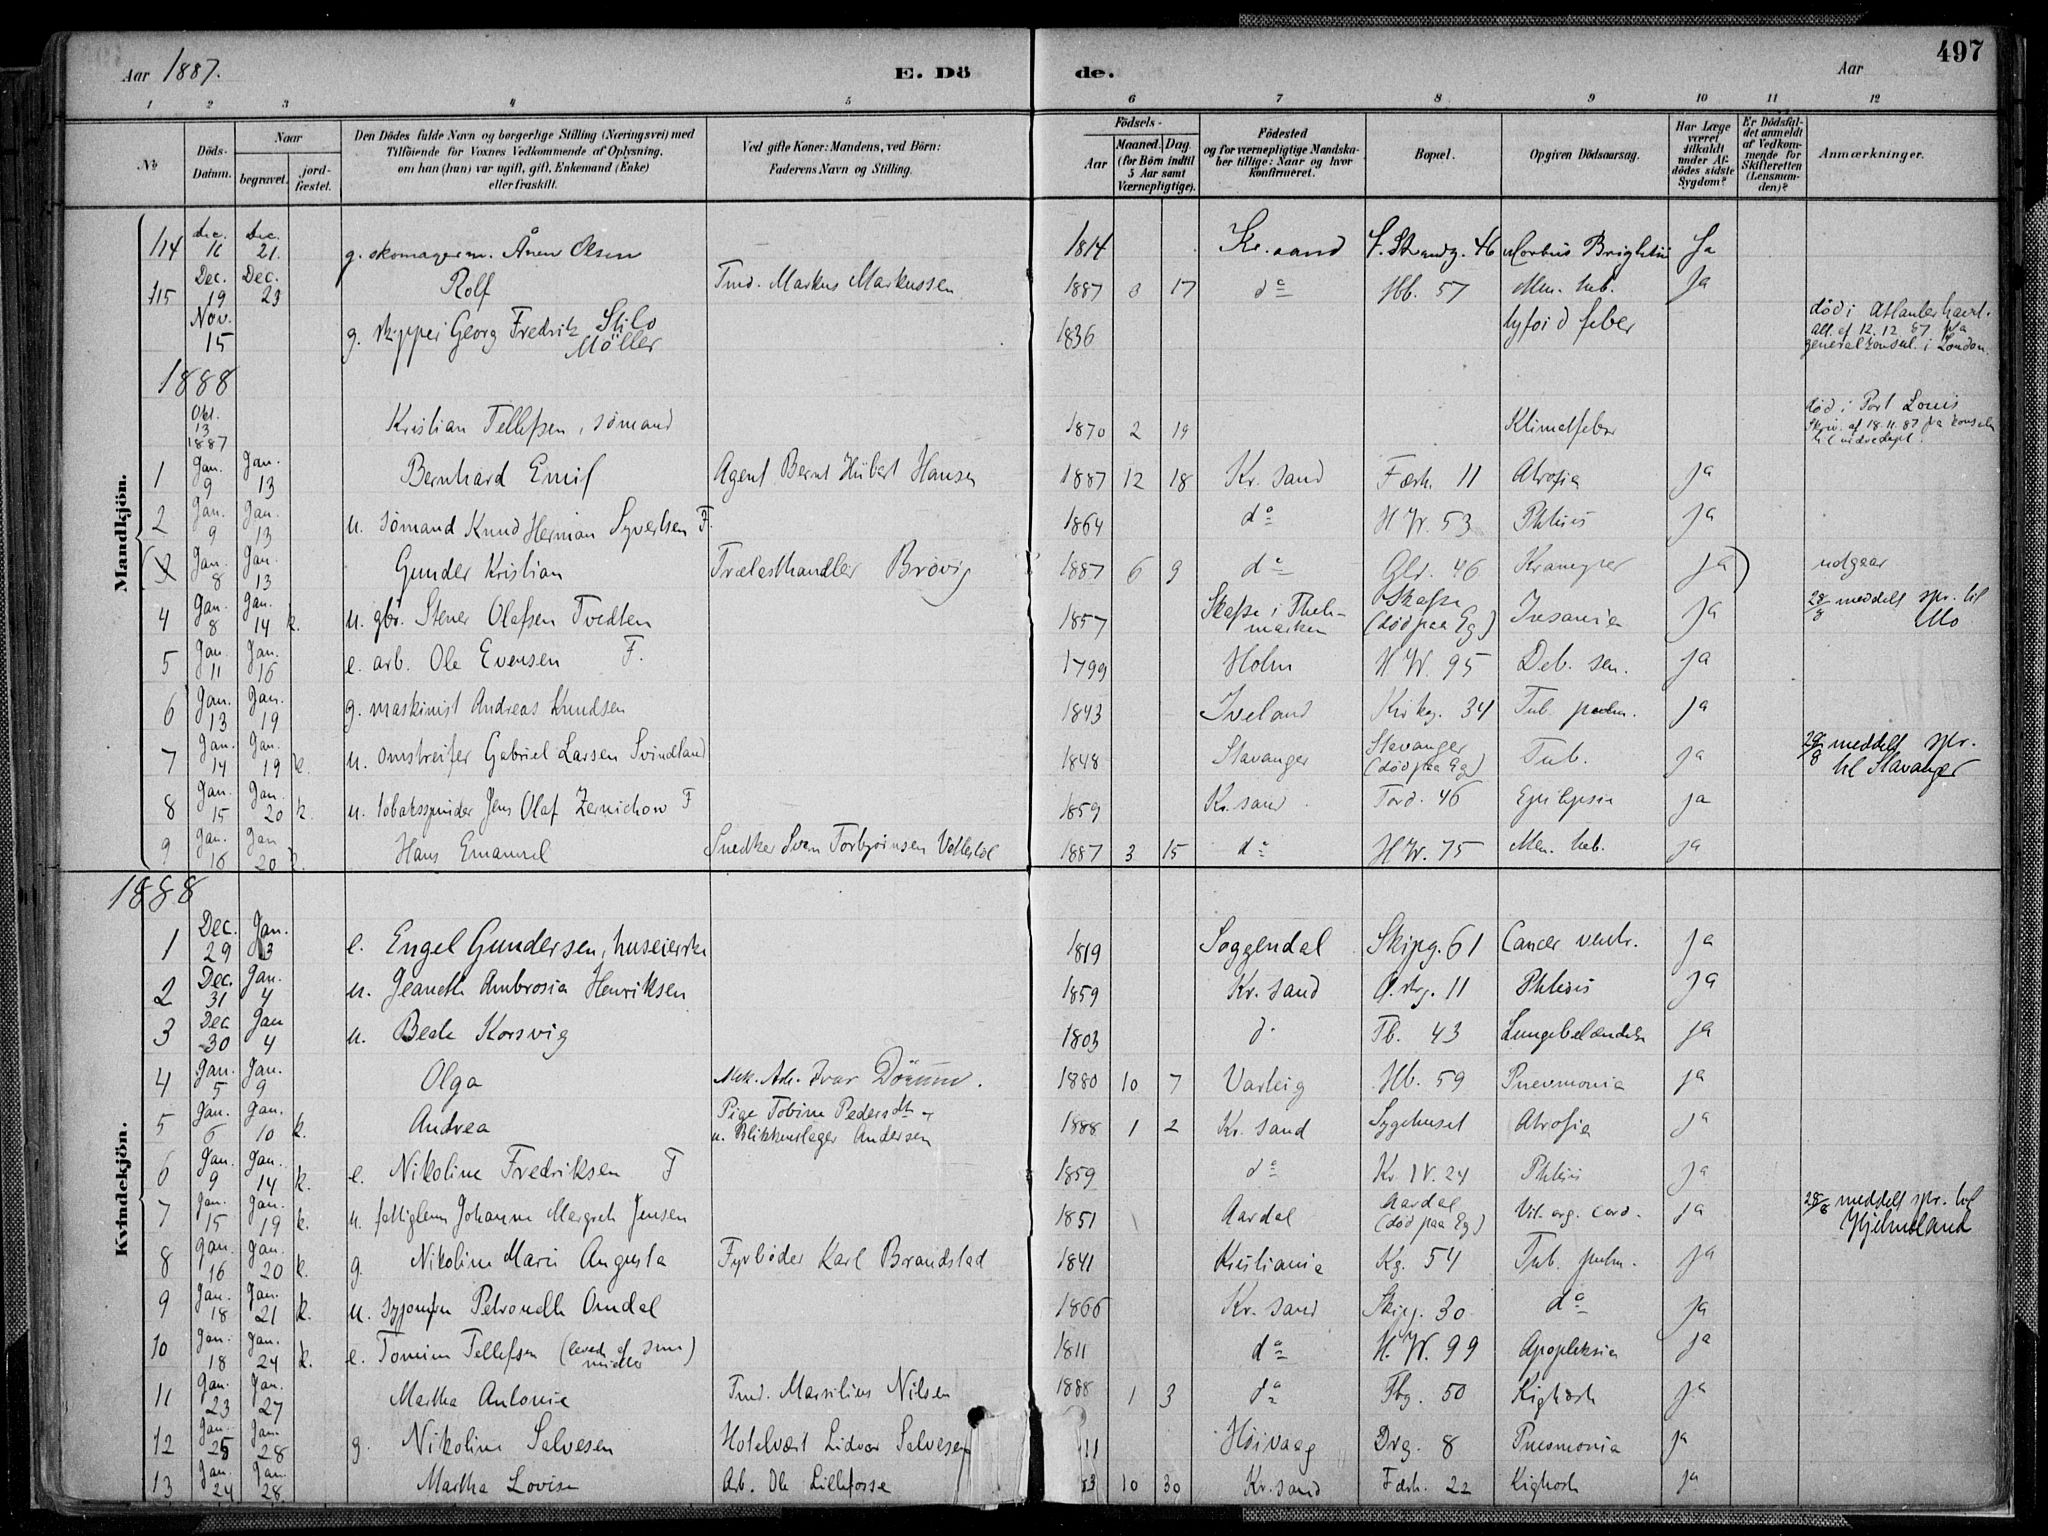 Aar 1887. E. Dö de. Aar 497
1 2 3 4 5 6 7 8 9 10 11 12
No
Döds-Datum.
Naar begravet. jord-fæstet.
Den Dödes fulde Navn og borgerlige Stilling (Næringsvei) med Tilföiende for Voxnes Vedkommende af Oplysning, om han (hun) var ugift, gift, Enkemand (Enke) eller fraskilt.
Ved gifte Koner: Mandens, ved Börn: Faderens Navn og Stilling.
Födsels-
Aar
Maaned. Dag. (for Börn indtil 5 Aar samt Værnepligtige).
Födested og for værnepligtige Mandskaber tillige: Naar og hvor Konfirmeret.
Bopæl.
Opgiven Dödsaarsag.
Har Læge været tilkaldt under Afdödes sidste Sygdom?
Er Dödsfaldet anmeldt af Vedkommende for Skifteretten (Lensmanden)?
Anmærkninger.
Mandkjön.
114 Dec. 16 Dec. 21. g. skomagerm. Ånen Olsen 1814 Kr.sand S. Strandg. 46 Morbus Brightii Ja
115 Dec. 19 Dec. 23 Rolf Tmd. Markus Markussen 1887 0 17 do Hb. 57 Men. tub. Ja
Nov. 15 g. skipper Georg Fredrik Stilo Möller 1836 tyfoid feber död i Atlanterhavet. att. af 12.12.87 fra generalkonsul. i London.
1888
Okt. 13 1887 Kristian Tellefsen, sömand 1870 2 19 Klimatfeber död i Port Louis Skriv. af 18.11.87 fra konsulen til
1 Jan. 9 Jan. 13 Bernhard Emil Agent Bernt Hübert Hansen 1887 12 18 Kr.sand Fæstn. 11 Atrofia ja
2 Jan. 9 Jan. 13 u. sömand Knud Herman Syvertsen F. 1864 do H.W. 53 Phtisis ja
(3 Jan. 8 Jan. 13 Gunder Kristian Trælasthandler Brövig 1887 6 9 do Glr. 46 Kramper ja) udgaar
4 Jan. 8 Jan. 14 k. u. gbr. Stener Olafsen Tvedten 1857 Skafse i Thelemarken Skafse (död paa Eg) Insania ja 28/8 meddelt spr. til Mo
5 Jan. 11 Jan. 16 e. arb. Ole Evensen F. 1799 Holm H.W. 95 Deb. sen. ja
6 Jan. 13 Jan. 19 g. maskinist Andreas Knudsen 1843 Iveland Kirkeg. 34 Tub. pulm. ja
7 Jan. 14 Jan. 19 k. u. omstreifer Gabriel Larsen Svindland 1848 Stavanger Stavanger (död paa Eg) Tub. ja 28/8 meddelt spr. til Stavanger
8 Jan. 15 Jan. 20 k. u. tobaksspinder Jens Olaf Zernichow F 1859 Kr.sand Tord. 46 Epilepsia ja
9 Jan. 16 Jan 20 k. Hans Emanuel Snedker Sven Torbjörnsen 1887 3 15 do H.W. 75 Men. tub. ja
1888
Kvindekjön.
1 Dec. 29 Jan. 3 e. Engel Gundersen, huseierske 1819 Soggendal Skipg. 61 Cancer ventr. ja
2 Dec. 31 Jan. 4 u. Jeaneth Ambrosia Henriksen 1859 Kr.sand Ø.strg. 11 Phtisis ja
3 Dec 30 Jan 4 u. Beate Korsvig 1803 do Tb. 43 Lungebetændelse ja
4 Jan. 5 Jan. 9 Olga Mek. Arb. Ivar 1880 10 7 Varteig Hb. 59 Pneumonia ja
5 Jan. 6 Jan. 10 k. Andrea Pige Tobine Pedersdt. u. Blikkenslager Andersen 1888 1 2 Kr.sand Sygehuset Atrofia ja
6 Jan. 9 Jan. 14 k. e. Nikoline Fredriksen F 1859 do Kr. IV. 24 Phtisis ja
7 Jan. 15 Jan. 19 k. u. fattiglem Johanne Margreth Jensen 1851 Aardal Aardal (död paa Eg) Vit. org. cord. ja 28/8 meddelt spr. til Hjelmeland
8 Jan. 16 Jan. 20 k. g. Nikoline Marie Augusta Fyrböder Karl Brandstad 1841 Kristiania Kg. 54 Tub. pulm. ja
9 Jan. 18 Jan. 21 k. u. syjomfru Petronelle Omdal 1866 Kr.sand Skipg. 30 do ja
10 Jan. 18 Jan. 24 k. e. Tomine Tellefsen (leved af sine midler) 1811 do H.W. 99 Apopleksia ja
11 Jan. 23 Jan. 27 Martha Antonie Tmd. Marsilius Nilsen 1888 1 3 do Fbg. 50 Kighoste ja
12 Jan. 25 Jan. 28 g. Nikoline Salvesen Hotelvært Lidvar Salvesen 11 Höivaag Drg. 8 Pneumonia ja
13 Jan. 24 Jan. 28. Martha Lovise Arb. Ole Lillefosse 3 10 30 Kr.sand Fæstn. 22 Kighoste ja